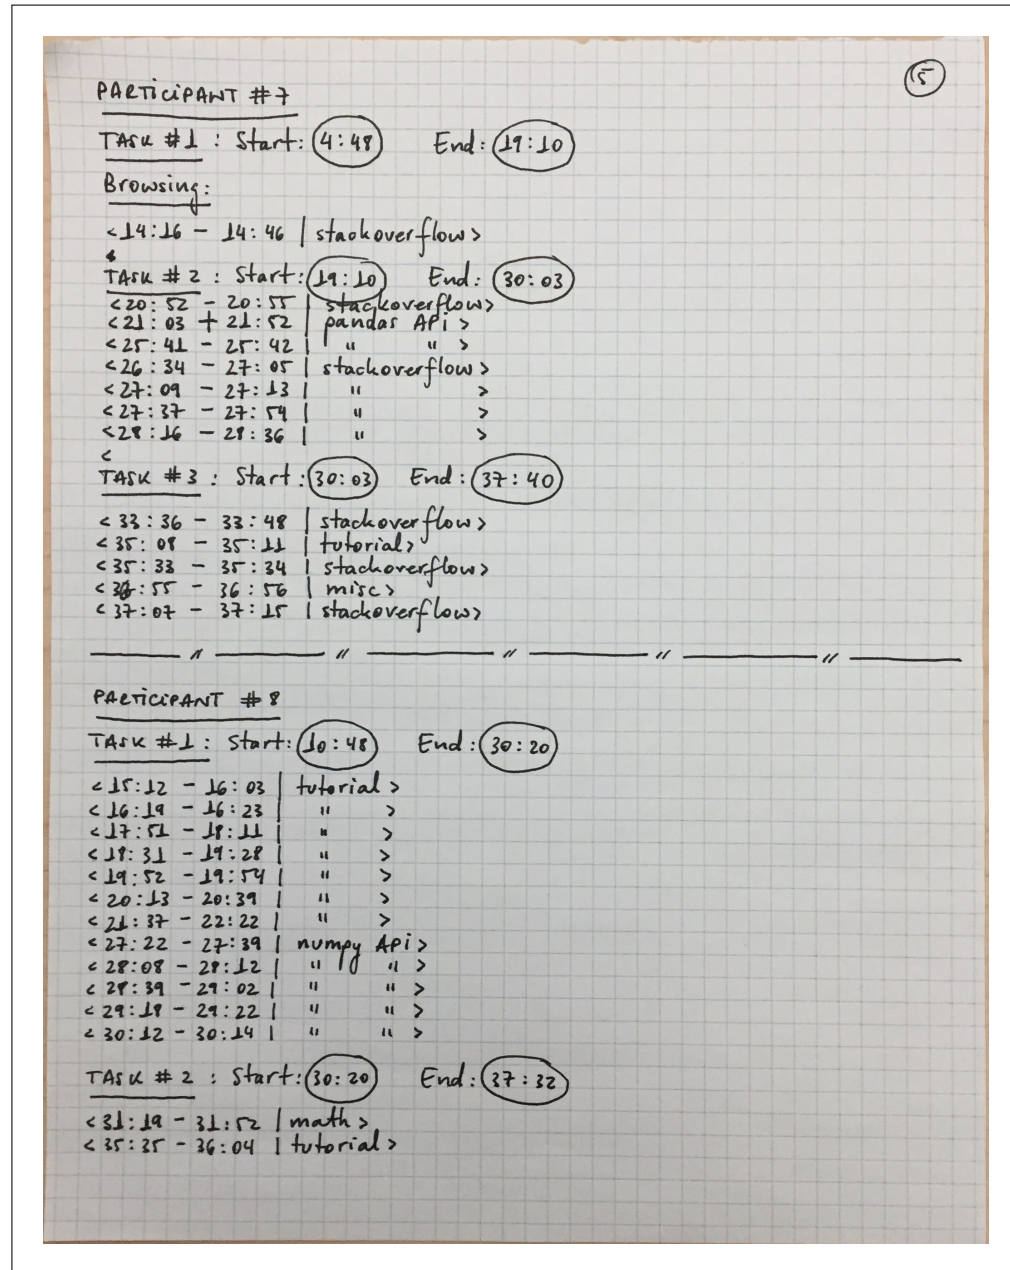 15
PARTICIPANT #7
TASK #1 : Start: 4:48 End: 19:10
Browsing:
<14:16 - 14:46 | stackoverflow>
TASK #2 : Start: 19:10 End: 30:03
<20:52 - 20:55 | stackoverflow>
<21:03 + 21:52 | pandas API >
<25:41 - 25:42 | " " >
<26:34 - 27:05 | stackoverflow>
<27:09 - 27:13 | " >
<27:37 - 27:54 | " >
<28:16 - 28:36 | " >
<
TASK #3 : Start: 30:03 End: 37:40
<33:36 - 33:48 | stackoverflow>
<35:08 - 35:11 | tutorial>
<35:33 - 35:34 | stackoverflow>
<36:55 - 36:56 | misc>
<37:07 - 37:15 | stackoverflow>
PARTICIPANT #8
TASK #1 : Start: 10:48 End: 30:20
<15:12 - 16:03 | tutorial >
<16:19 - 16:23 | " >
<17:51 - 18:11 | " >
<18:31 - 19:28 | " >
<19:52 - 19:54 | " >
<20:13 - 20:39 | " >
<21:37 - 22:22 | " >
<27:22 - 27:39 | numpy API >
<28:08 - 28:12 | " " >
<28:39 - 29:02 | " " >
<29:18 - 29:22 | " " >
<30:12 - 30:14 | " " >
TASK #2 : Start: 30:20 End: 37:32
<31:19 - 31:52 | math>
<35:35 - 36:04 | tutorial>